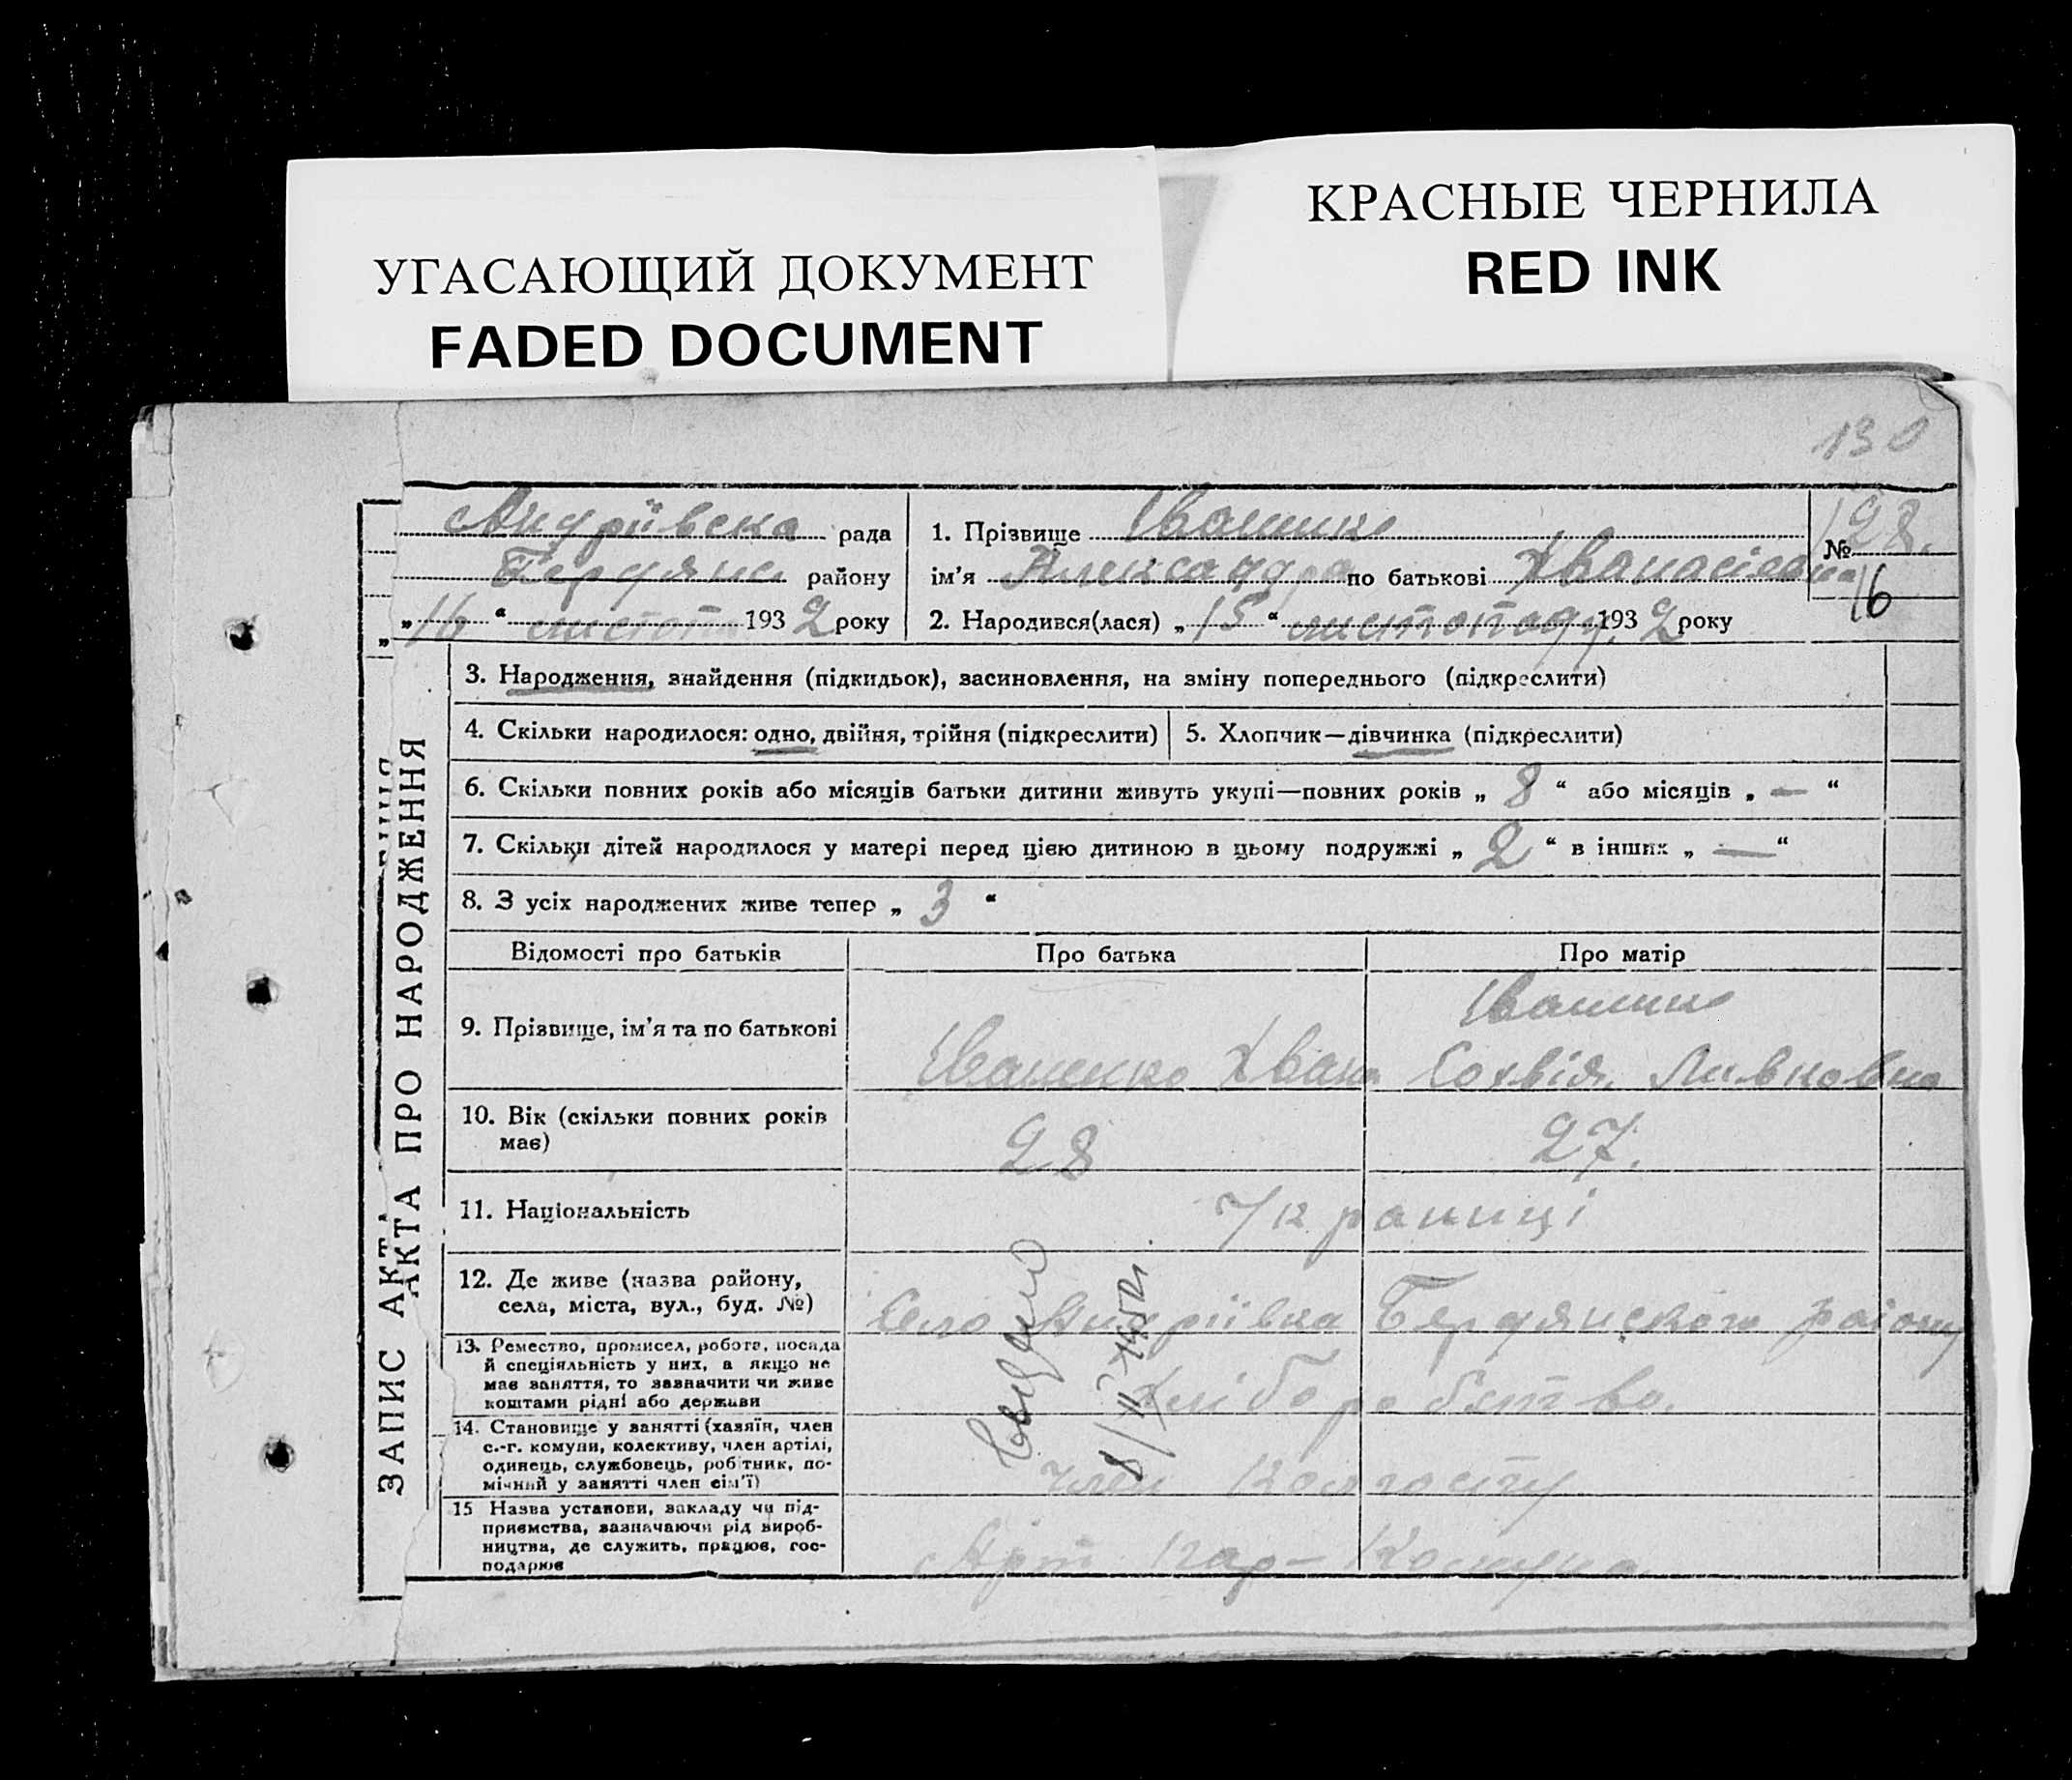 КРАСНЫЕ ЧЕРНИЛА
RED INK
УГАСАЮЩИЙ ДОКУМЕНТ
FADED DOCUMENT
130
Андріївска рада
Бердянс. району
„16“ листоп 1932 року
1. Прізвище
ім'я Александра по батькові Хванасіевна
2. Народився(лася) „15“ листопаду 1932 року
№ 128.
16
ЗАПИС АКТА ПРО НАРОДЖЕННЯ
3. Народження, знайдення (підкидьок), засиновлення, на зміну попереднього (підкреслити)
4. Скільки народилося: одно, двійня, трійня (підкреслити)
5. Хлопчик—дівчинка (підкреслити)
6. Скільки повних років або місяців батьки дитини живуть укупі—повних років „8“ або місяців „—“
7. Скільки дітей народилося у матері перед цією дитиною в цьому подружжі „2“ в інших „—“
8. З усіх народжених живе тепер „3“
Відомості про батьків
Про батька
Про матір
9. Прізвище, ім'я та по батькові
Іваненко Хвана
Сохвія
10. Вік (скільки повних років має)
28
27.
11. Національність
Украинці
12. Де живе (назва району, села, міста, вул., буд. №)
Село Андріївка Бердянского району
13. Ремество, промисел, робота, посада й спеціяльність у них, а якщо не має заняття, то зазначити чи живе коштами рідні або держави
Хліборобство.
14. Становище у занятті (хазяїн, член с.-г. комуни, колективу, член артілі, одинець, службовець, робітник, помічний у занятті член сім'ї)
член колгоспу
15 Назва установи, закладу чи підприємства, зазначаючи рід виробництва, де служить, працює, господарює
Арт. Пар-Комуна.